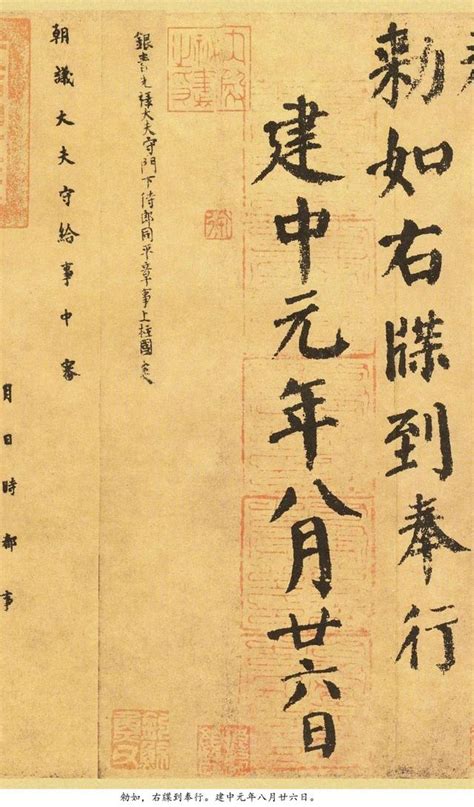 勅如右牒到奉行
建中元年八月廿六日
銀青光祿大夫守門下侍郎同平章事上柱國炎
朝議大夫守給事中審
月日時都事
勅如，右牒到奉行。建中元年八月廿六日。